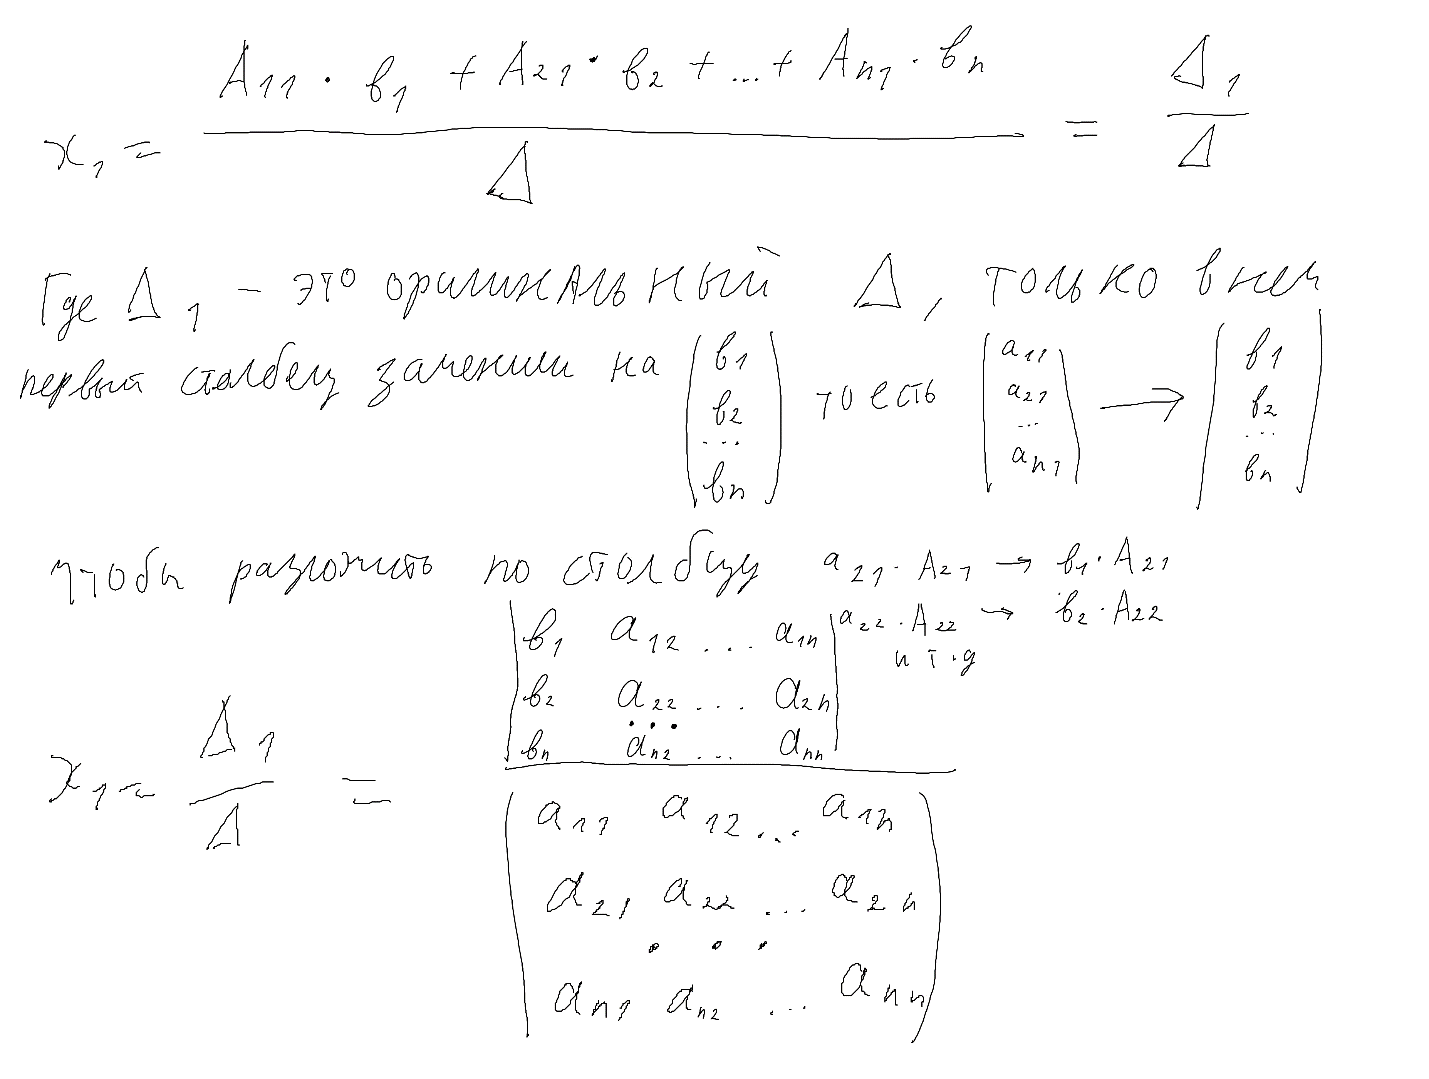 x₁ = (A₁₁ · в₁ + A₂₁ · в₂ + ... + Aₙ₁ · вₙ) / Δ = Δ₁ / Δ
Где Δ₁ – это оригинальный Δ, только в нем
первый столбец заменили на (в₁ в₂ ... вₙ) то есть (a₁₁ a₂₁ ... aₙ₁) → (в₁ в₂ ... вₙ)
чтобы разложить по столбцу a₂₁ · A₂₁ → в₁ · A₂₁
a₂₂ · A₂₂ → в₂ · A₂₂
и т.д
x₁ = Δ₁ / Δ =
|в₁ a₁₂ ... a₁ₙ|
|в₂ a₂₂ ... a₂ₙ|
...
|вₙ aₙ₂ ... aₙₙ|
(a₁₁ a₁₂ ... a₁ₙ
a₂₁ a₂₂ ... a₂ₙ
. . .
aₙ₁ aₙ₂ ... aₙₙ)